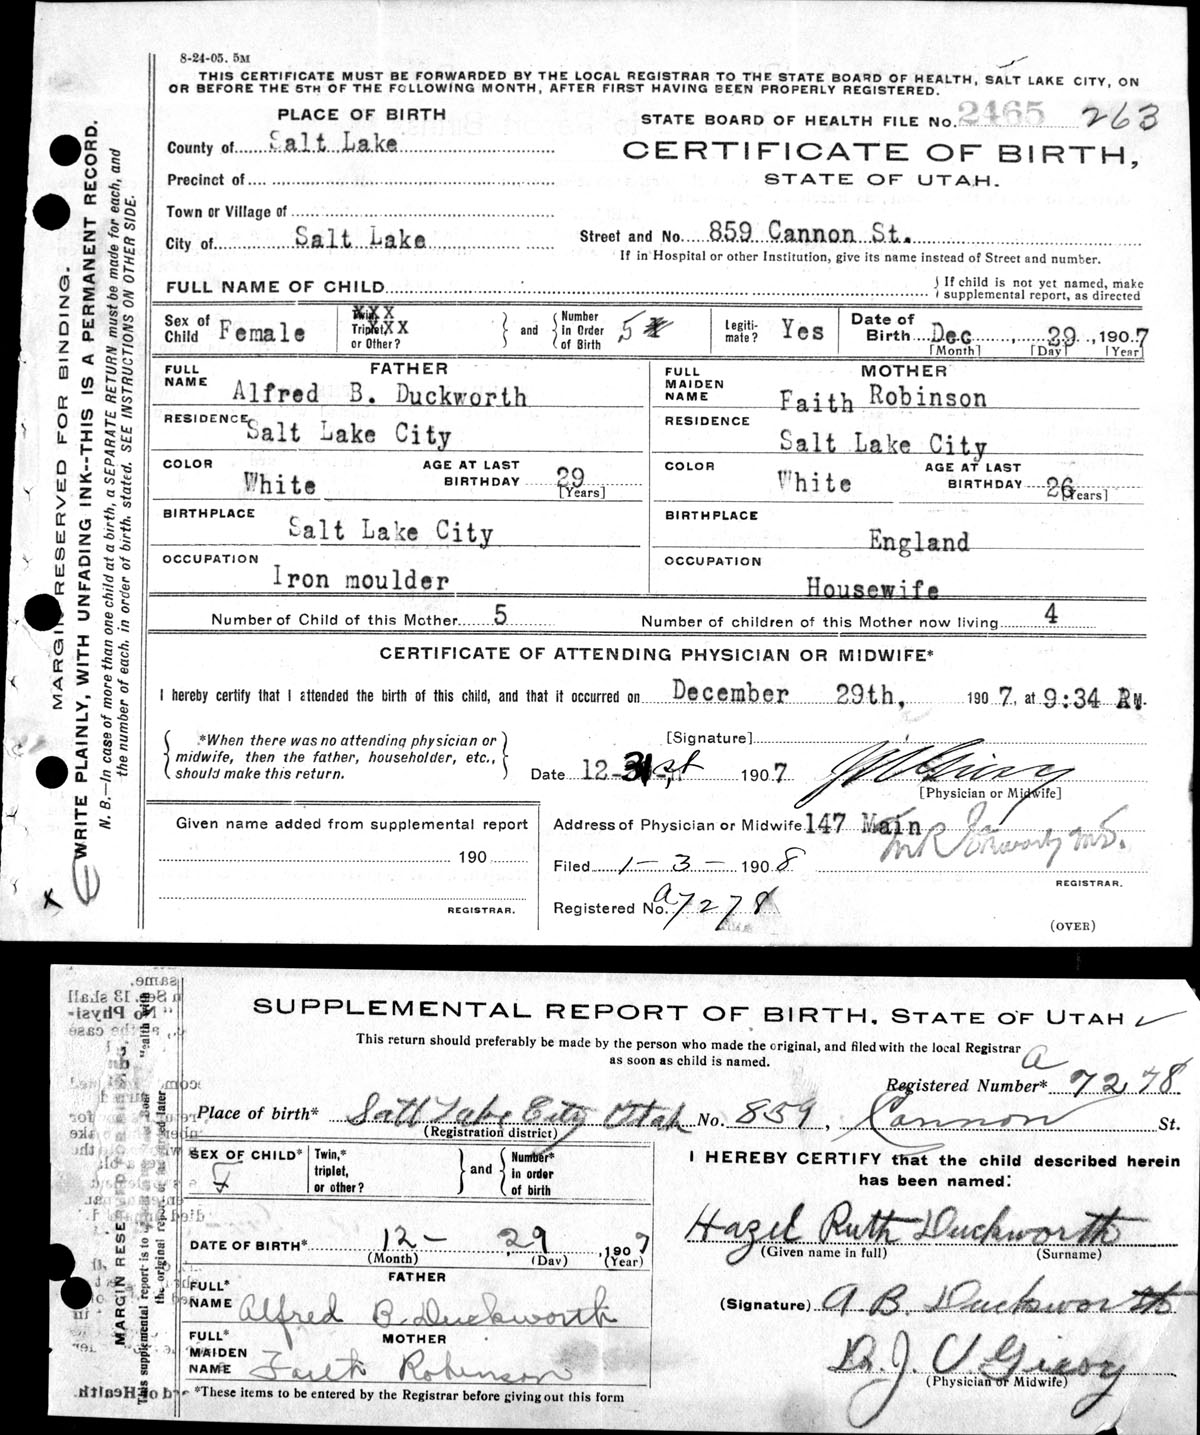 8-24-05. 5M
THIS CERTIFICATE MUST BE FORWARDED BY THE LOCAL REGISTRAR TO THE STATE BOARD OF HEALTH, SALT LAKE CITY, ON
OR BEFORE THE 5TH OF THE FOLLOWING MONTH, AFTER FIRST HAVING BEEN PROPERLY REGISTERED.
PLACE OF BIRTH
STATE BOARD OF HEALTH FILE No. 2465 263
County of Salt Lake
CERTIFICATE OF BIRTH,
STATE OF UTAH.
Precinct of
Town or Village of
City of Salt Lake
Street and No. 859 Cannon St.
If in Hospital or other Institution, give its name instead of Street and number.
FULL NAME OF CHILD
If child is not yet named, make
supplemental report, as directed
Sex of Child Female
Twin, Triplet or Other? XXX XX
and Number in Order of Birth 5
Legitimate? Yes
Date of Birth Dec 29, 1907
[Month] [Day] [Year]
FATHER
FULL NAME Alfred B. Duckworth
RESIDENCE Salt Lake City
COLOR White
AGE AT LAST BIRTHDAY 29 [Years]
BIRTHPLACE Salt Lake City
OCCUPATION Iron moulder
MOTHER
FULL MAIDEN NAME Faith Robinson
RESIDENCE Salt Lake City
COLOR White
AGE AT LAST BIRTHDAY 26 [Years]
BIRTHPLACE England
OCCUPATION Housewife
Number of Child of this Mother 5
Number of children of this Mother now living 4
CERTIFICATE OF ATTENDING PHYSICIAN OR MIDWIFE*
I hereby certify that I attended the birth of this child, and that it occurred on December 29th, 1907, at 9:34 M.
*When there was no attending physician or
midwife, then the father, householder, etc.,
should make this return.
[Signature]
Date 12-31st 1907
[Physician or Midwife]
Given name added from supplemental report
190
REGISTRAR.
Address of Physician or Midwife 147 Main
Filed 1-3-1908
REGISTRAR.
Registered No. a7278
(OVER)
MARGIN RESERVED FOR BINDING.
WRITE PLAINLY, WITH UNFADING INK--THIS IS A PERMANENT RECORD.
N. B.—In case of more than one child at a birth, a SEPARATE RETURN must be made for each, and
the number of each, in order of birth, stated. SEE INSTRUCTIONS ON OTHER SIDE.
SUPPLEMENTAL REPORT OF BIRTH, STATE OF UTAH
This return should preferably be made by the person who made the original, and filed with the local Registrar
as soon as child is named.
Registered Number* a 7278
Place of birth* Salt Lake City Utah No. 859, Cannon St.
(Registration district)
SEX OF CHILD* F
Twin,* triplet, or other?
and Number* in order of birth
I HEREBY CERTIFY that the child described herein
has been named:
Hazel Ruth Duckworth
(Given name in full) (Surname)
DATE OF BIRTH* 12- 29, 1907
(Month) (Day) (Year)
FATHER
FULL* NAME Alfred B. Duckworth
(Signature) A B. Duckworth
MOTHER
FULL* MAIDEN NAME Faith Robinson
(Physician or Midwife)
*These items to be entered by the Registrar before giving out this form